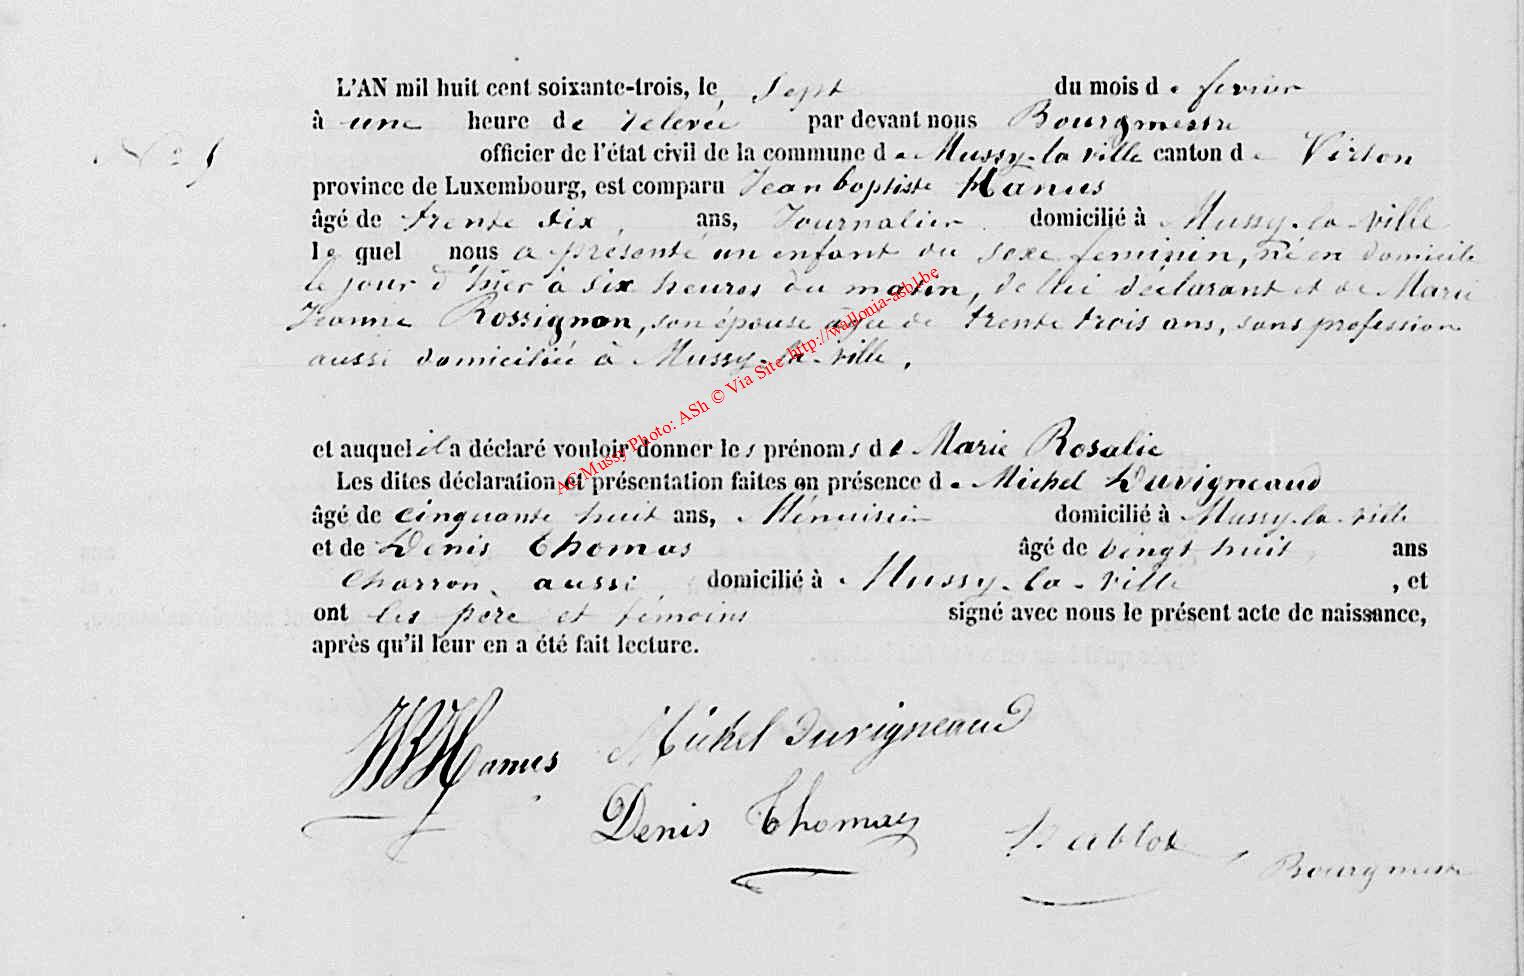 L'AN mil huit cent soixante-trois, le sept du mois de fevrier
à une heure de relevée par devant nous Bourgmestre
N° 5 officier de l'état civil de la commune de Mussy-la-ville canton de Virton
province de Luxembourg, est comparu Jean baptiste Hanus
âgé de trente six, ans, Journalier domicilié à Mussy-la-ville
le quel nous a présenté un enfant du sexe feminin, né en domicile
le jour d'hier à six heures du matin, de lui déclarant et de Marie
Jeanne Rossignon, son épouse âgée de trente trois ans, sans profession
aussi domiciliée à Mussy-la-ville.
et auquel il a déclaré vouloir donner les prénoms de Marie Rosalie
Les dites déclaration et présentation faites en présence de Michel Duvigneaud
âgé de cinquante huit ans, Ménuisier domicilié à Mussy-la-ville
et de Denis Thomas âgé de vingt huit, ans
Charron, aussi domicilié à Mussy-la-ville, et
ont les père et témoins signé avec nous le présent acte de naissance,
après qu'il leur en a été fait lecture.
Hanus Michel Duvigneaud
Denis Thomas
Bourgmestre
AC Mussy Photo: ASh © Via Site http://wallonia-asbl.be